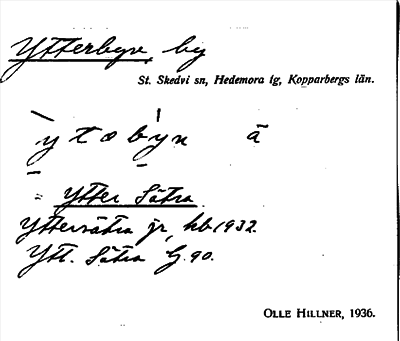 Ytterbyn, by
St. Skedvi sn, Hedemora tg, Kopparbergs län.
ytobyn ä
= Ytter Sätra
Yttersätra jr, kb 1932.
Ytt. Sätra G. 90.
OLLE HILLNER, 1936.